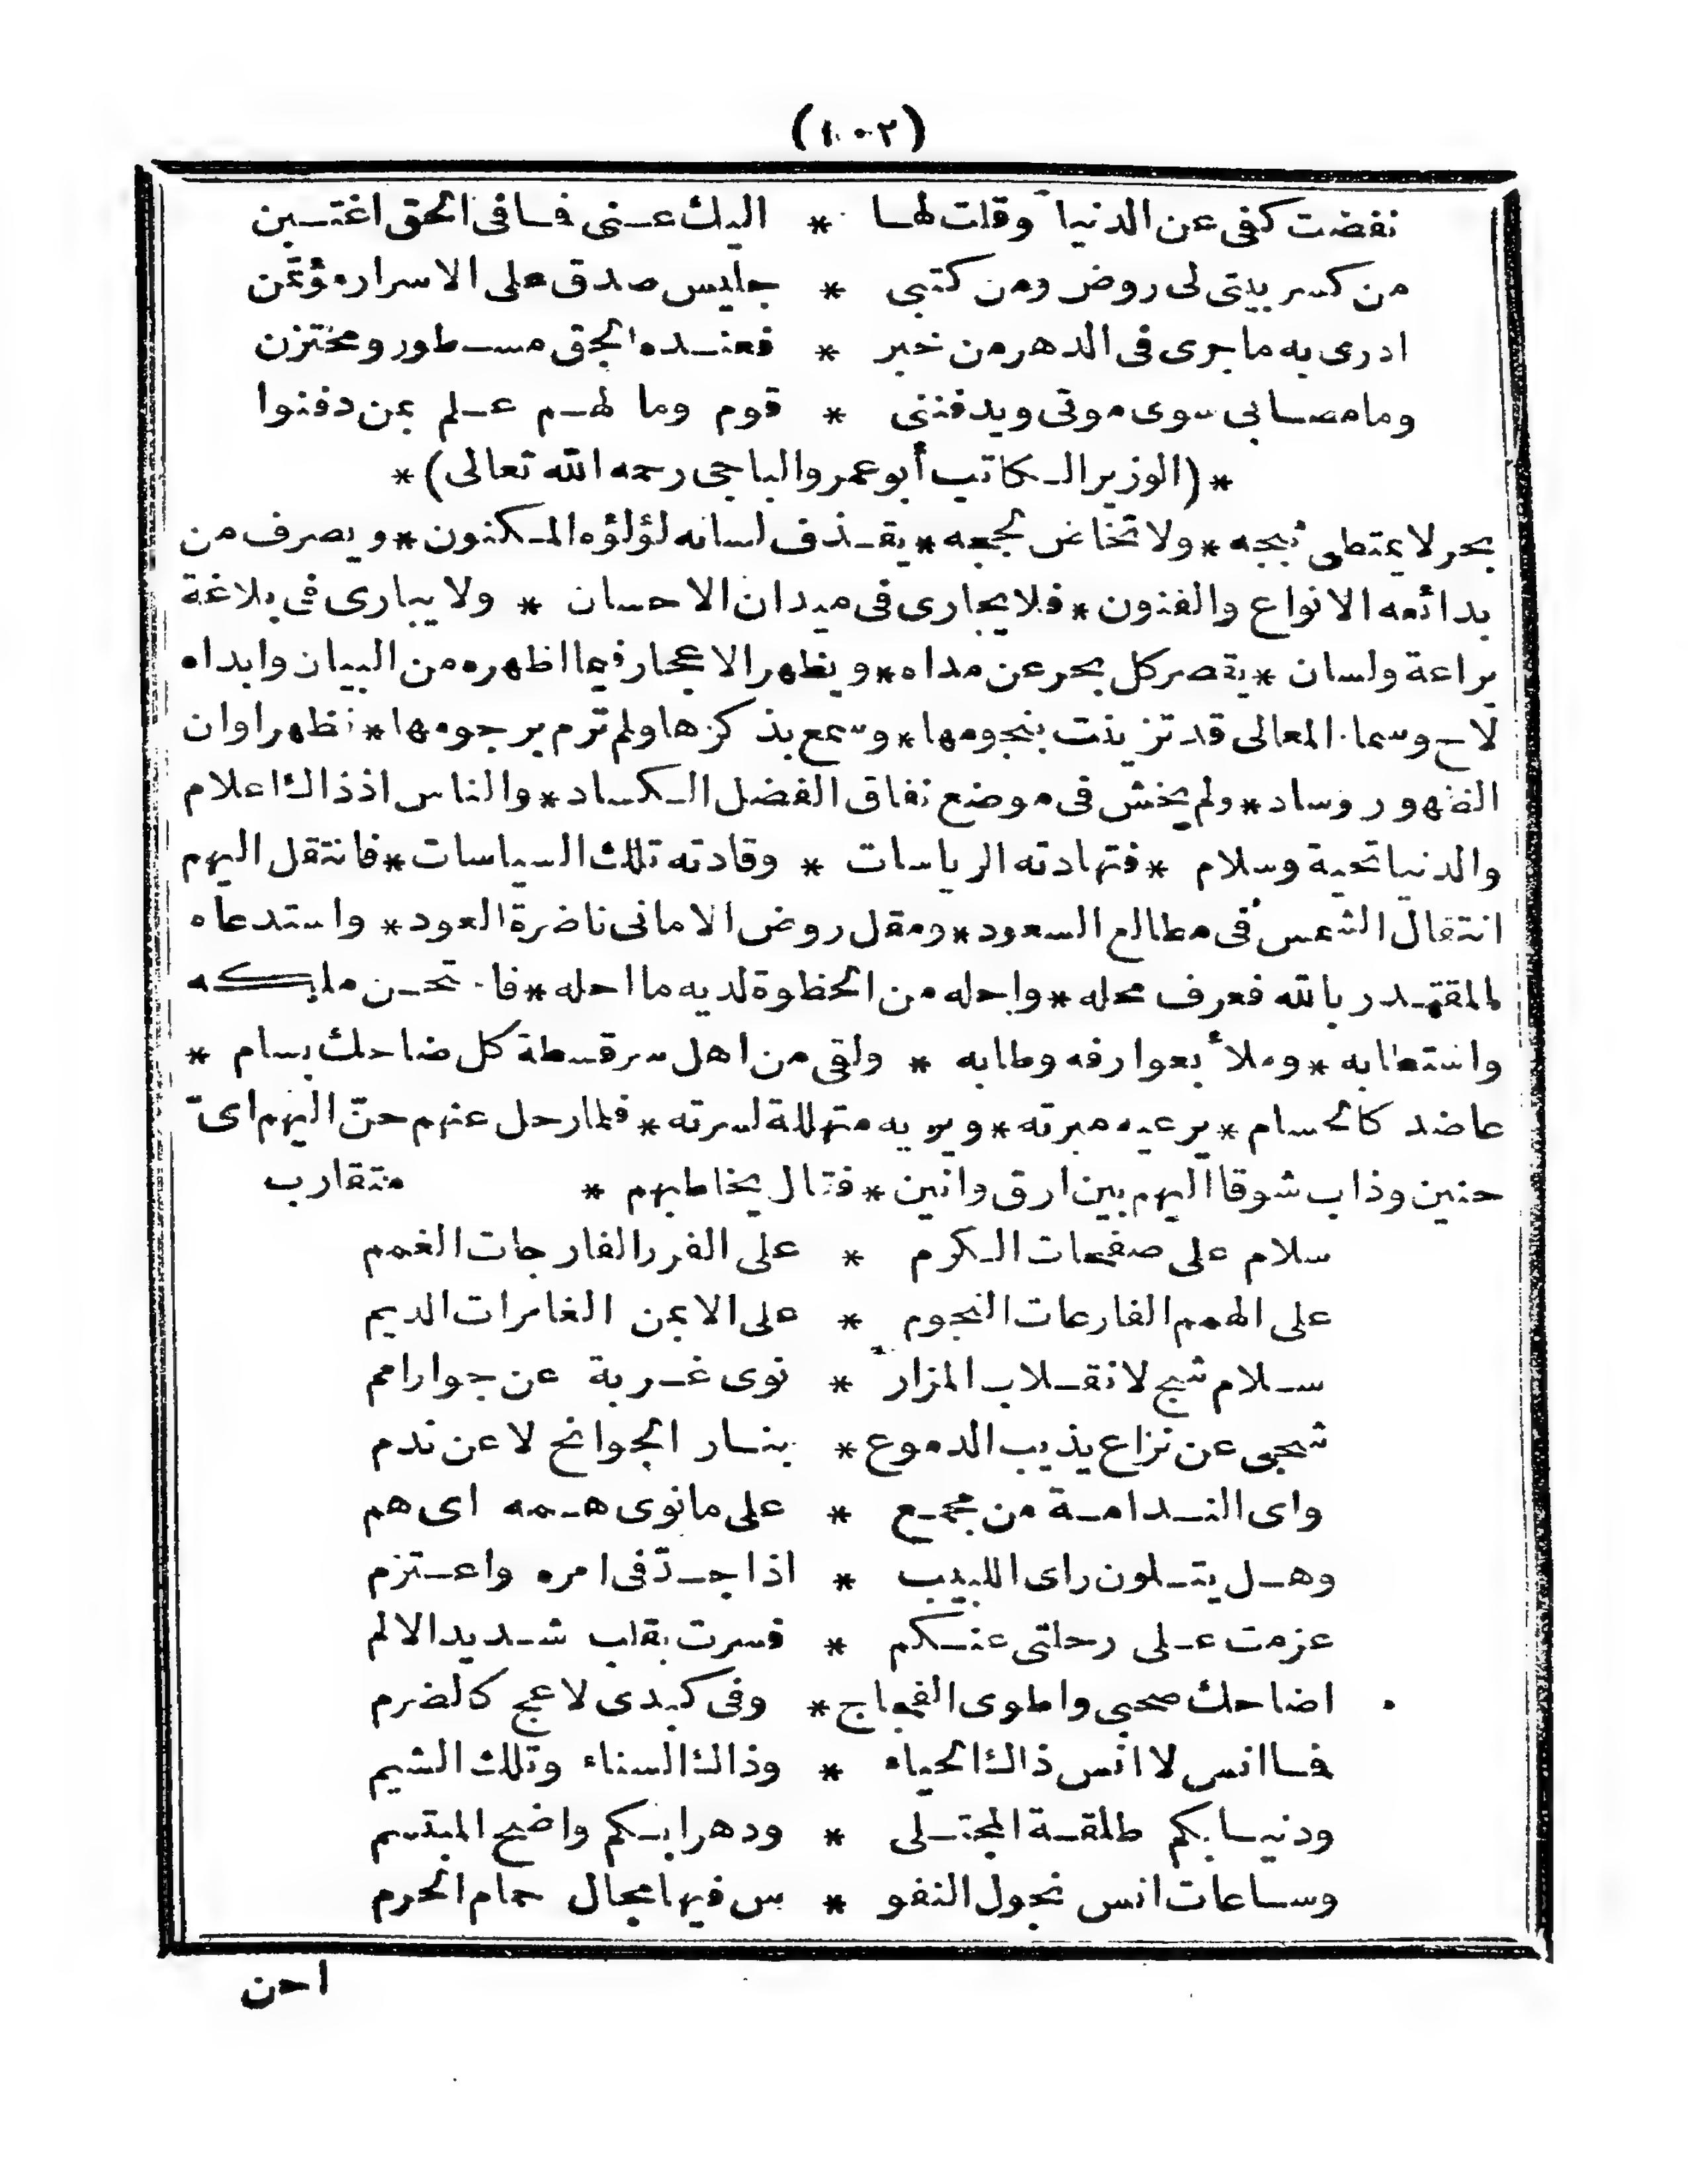 (١٠٢)
نفضت كفى عن الدنيا وقلت لها * اليك عنى فافى الحق اغتبن
من كسر بيتى لى روض ومن كتبى * جليس صدق على الاسرار مؤتمن
ادرى به ماجرى فى الدهر من خبر * فعنده الحق مسطور ومختزن
وما مصابى سوى موتى ويدفننى * قوم وما لهم علم بمن دفنوا
*(الوزير الكاتب أبو عمر والباجى رحمه الله تعالى)*
بحر لا يمتطى ثبجه * ولا تخاض لججه * يقذف لسانه لؤلؤه المكنون * ويصرف من
بدائعه الانواع والفنون * فلا يجارى فى ميدان الاحسان * ولا يبارى فى بلاغة
براعة ولسان * يقصر كل بحر عن مداه * ويظهر الاعجاز فيما اظهره من البيان وابداه
لاح وسماء المعالى قد تزينت بنجومها * وسمع بذكرها ولم ترم برجومها * فظهر اوان
الظهور وساد * ولم يخش فى موضع نفاق الفضل الكساد * والناس اذ ذاك اعلام
والدنيا تحية وسلام * فتهادته الرياسات * وقادته تلك السياسات * فانتقل اليهم
انتقال الشمس فى مطالع السعود * ومقل روض الامانى ناضرة العود * واستدعاه
المقتدر بالله فعرف محله * واحله من الحظوة لديه ما احله * فا تحن مليكه
واستطابه * وملأ بعوارفه وطابه * ولقى من اهل سرقسطة كل ضاحك بسام *
عاضد كالحسام * يرعيه مبرته * ويريه متهللة اسرته * فلما رحل عنهم حنّ اليهم اىّ
حنين وذاب شوقا اليهم بين ارق وانين * فقال يخاطبهم * متقارب
سلام على صفحات الكرم * على الغرر الفارجات الغمم
على الهمم الفارعات النجوم * على الايمن الغامرات الديم
سلام شج لانقلاب المزار * نوى غربة عن جوار امم
شجى عن نزاع يذيب الدموع * بنار الجوانح لا عن ندم
واى الندامة من مجمع * على ما نوى همه اى هم
وهل يتلون راى اللبيب * اذا جدّ فى امره واعتزم
عزمت على رحلتى عنكم * فسرت بقلب شديد الالم
اضاحك صحبى واطوى الفجاج * وفى كبدى لاعج كالضرم
فما انس لا انس ذاك الحياء * وذاك السناء وتلك الشيم
ودنيا بكم طلقة المجتلى * ودهرا بكم واضح المبتسم
وساعات انس تجول النفو * س فيها مجال حمام الحرم
احن